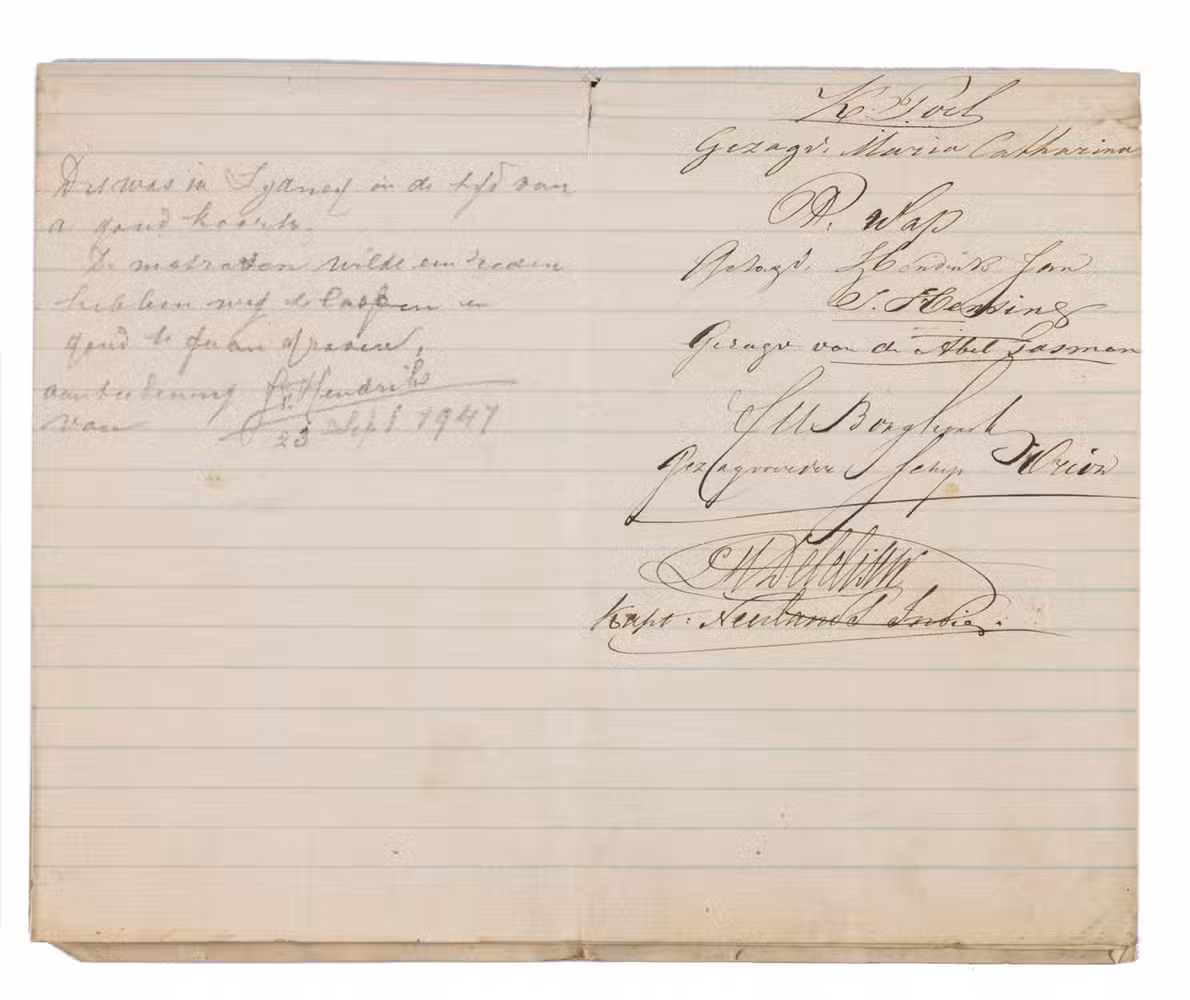 Dit was in Sydney in de tijd van
de goud koorts.
De matrozen wilde een reden
hebben weg te loopen en
goud te gaan graven,
aanteekening Hendriks
van 23 Sept 1947
K. Poel
Gezagv. Maria Catharina
P. Wap
Gezagv. Hendrik Jan
S. Hensing
Gezagv van de Abel Tasman
Gezagvoerder Schip Orion
Kapt: Neerlands Indie.